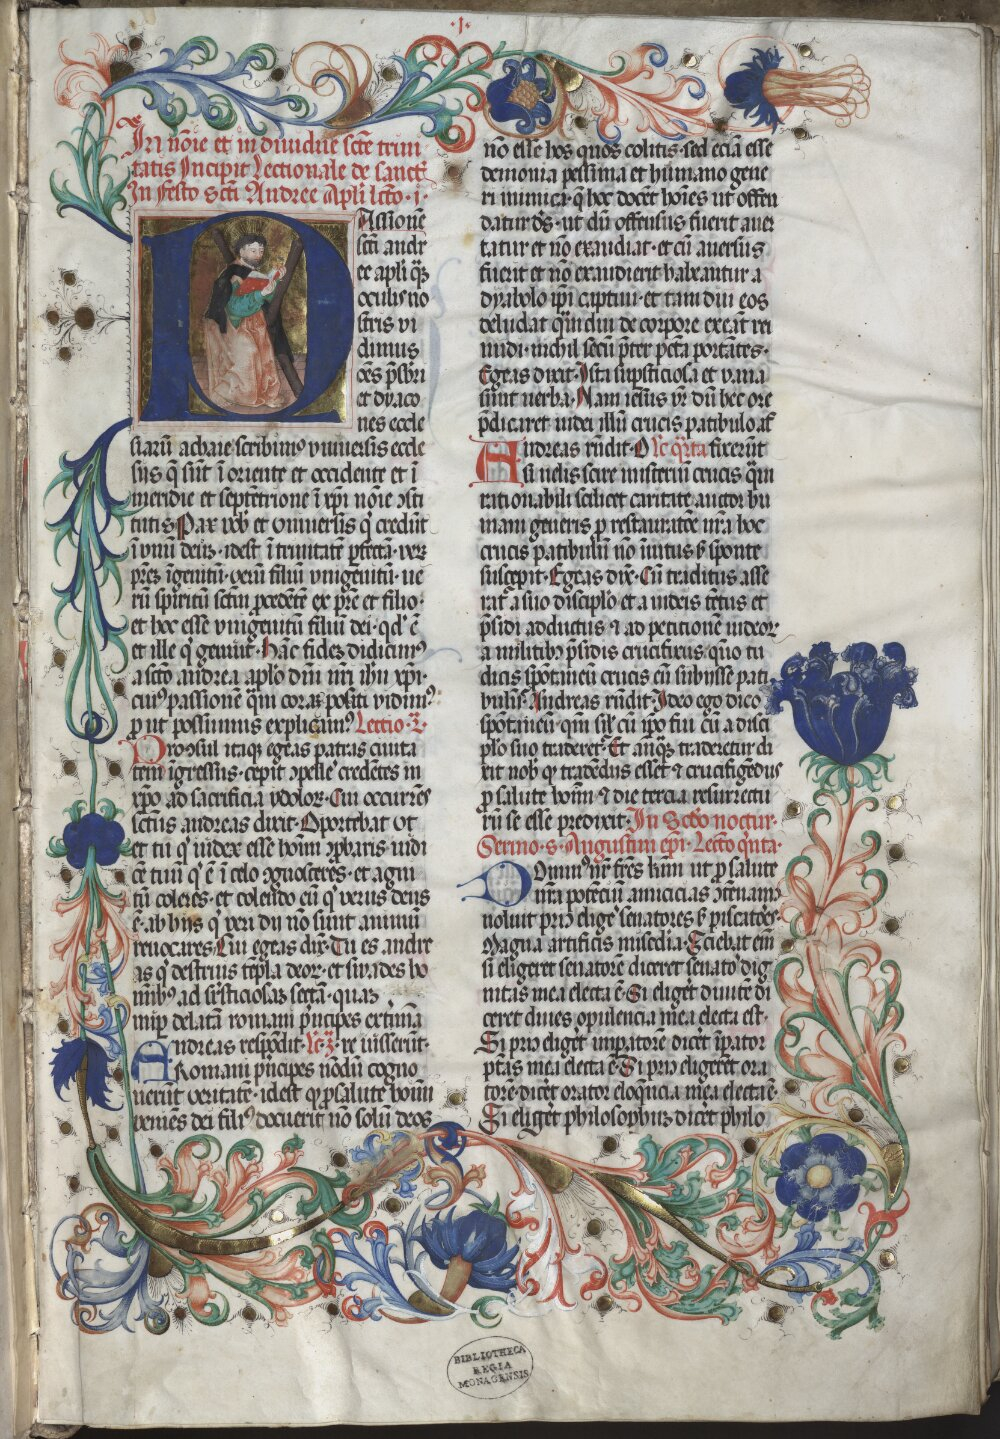 ·I·
In nōie et in diuidue scte trini
tatis Incipit Lectionale de sanctꝭ
In festo scti Andree Apli lctō ·i·
PAssionē
scti andr
ee apli qȝ
oculis no
stris vi
dimus
oēs psbri
et dyaco
nes eccle
siarū achaie scribimꝰ vniuersis eccle
siis q̄ sūt ī oriente et occidente et ī
meridie et septētrione ī xpi nōie ꝯsti
tutis Pax vob et vniuersis q̇ credūt
ī vnū deuȝ · idest ī trinitatē pfectā · ver
prēȝ īgenitū · verū filiū vnigenitū · ue
rū spiritū sctm pcedētē ex pre et filio ·
et hoc esse vnigenitū filiū dei · qd ē
et ille q̇ genuit · Hāc fideȝ didicimꝰ
a scto andrea aplo dni nri ihu xpi ·
cuiꝰ passionē q̄m corā positi vidimꝰ
put possumus explicamꝰ Lectio · 2 ·
Proꝯsul itaqȝ egeas patras ciuita
tem īgressus · cepit ꝯpelle credētes in
xpo ad sacrificia ydoloꝝ · Cui occurrēs
sctūs andreas dixit · Oportebat vt
et tu q̇ iudex esse hoīm ꝯpbaris iudi
cē tuū q̇ ē ī celo ꝯgnosceres · et agni
tū coleres · et colendo eū q̇ verus deus
ē · ab hiis q̇ veri dii nō sunt animū
reuocares Cui egeas dix · Tu es andre
as q̇ destruis tēpla deoꝝ · et suades ho
mībꝰ ad suꝑsticiosaȝ sectā · quaȝ
nuꝑ delatā romani pncipes extīnā
Andreas respōdit · lc · 3 · re iusserūt ·
Romani pncipes nōdū cogno
uerūt veritatē · idest q̇ psalute hoīm
veniēs dei filiꝰ docuerit nō solū deos
nō esse hos quos colitis · sed eciā esse
demonia pessima et humano gene
ri inimica · q̄ hec docēt hoīes ut offen
datur ds · ut dū offensus fuerit auer
tatur et nō exaudiat · et cū auersus
fuerit et nō exaudierit habeantur a
dyabolo ipi captiui · et tam diu eos
deludat q̄mdiu de corpore exeāt rei
nudi · nichil secū preter pctā portātes ·
Egeas dixit · Ista supsticiosa et vana
sunt uerba · Nam iesus vr dū hec ore
pdicaret iudei illū crucis patibulo af
Andreas rndit · O lc q̄rta fixerūt
si uelis scire misteriū crucis q̄m
rationabili scilicet caritate auctor hu
mani generis p restauratōe nra hoc
crucis patibulū nō inuitus s sponte
suscepit · Egeas dix · Cū traditus asse
rat a suo discipulo · et a iudeis tētus et
psidi adductus · et ad petitionē iudeoꝝ
a militibꝫ psidis crucifixus · quo tu
dicis spōtaneū crucis eū subiisse pati
bulū · Andreas rndit · Ideo ego dico
spōtaneū · qm̄ sil cū ipo fui cū a disci
plo suo traderet Et anqȝ traderetur di
xit nob q̇ tradēdus esset et crucifigēdus
p salute hoīm · et die tercia resurrectu
rū se esse predixit · In Scdo noctur ·
Sermo · s · Augustini epi · Lectō q̇nta
Dominꝰ nr frēs hūm ut p salute
nra potētiū amicicias ꝯtēnam
noluit primo eligē senatores s piscatōes ·
Magna artificis misedia · Sciebat em
si eligeret senatorē diceret senato dig
nitas mea electa ē · Si eliget diuitē di
ceret diues opulencia mea electa est ·
Si prio eliget impatorē dicet ipator
ptās mea electa ē · Si prio eligeret ora
torē · dicet orator eloqncia mea electa ē
Si eliget philosophuȝ dicet philo
BIBLIOTHECA
REGIA
MONACENSIS